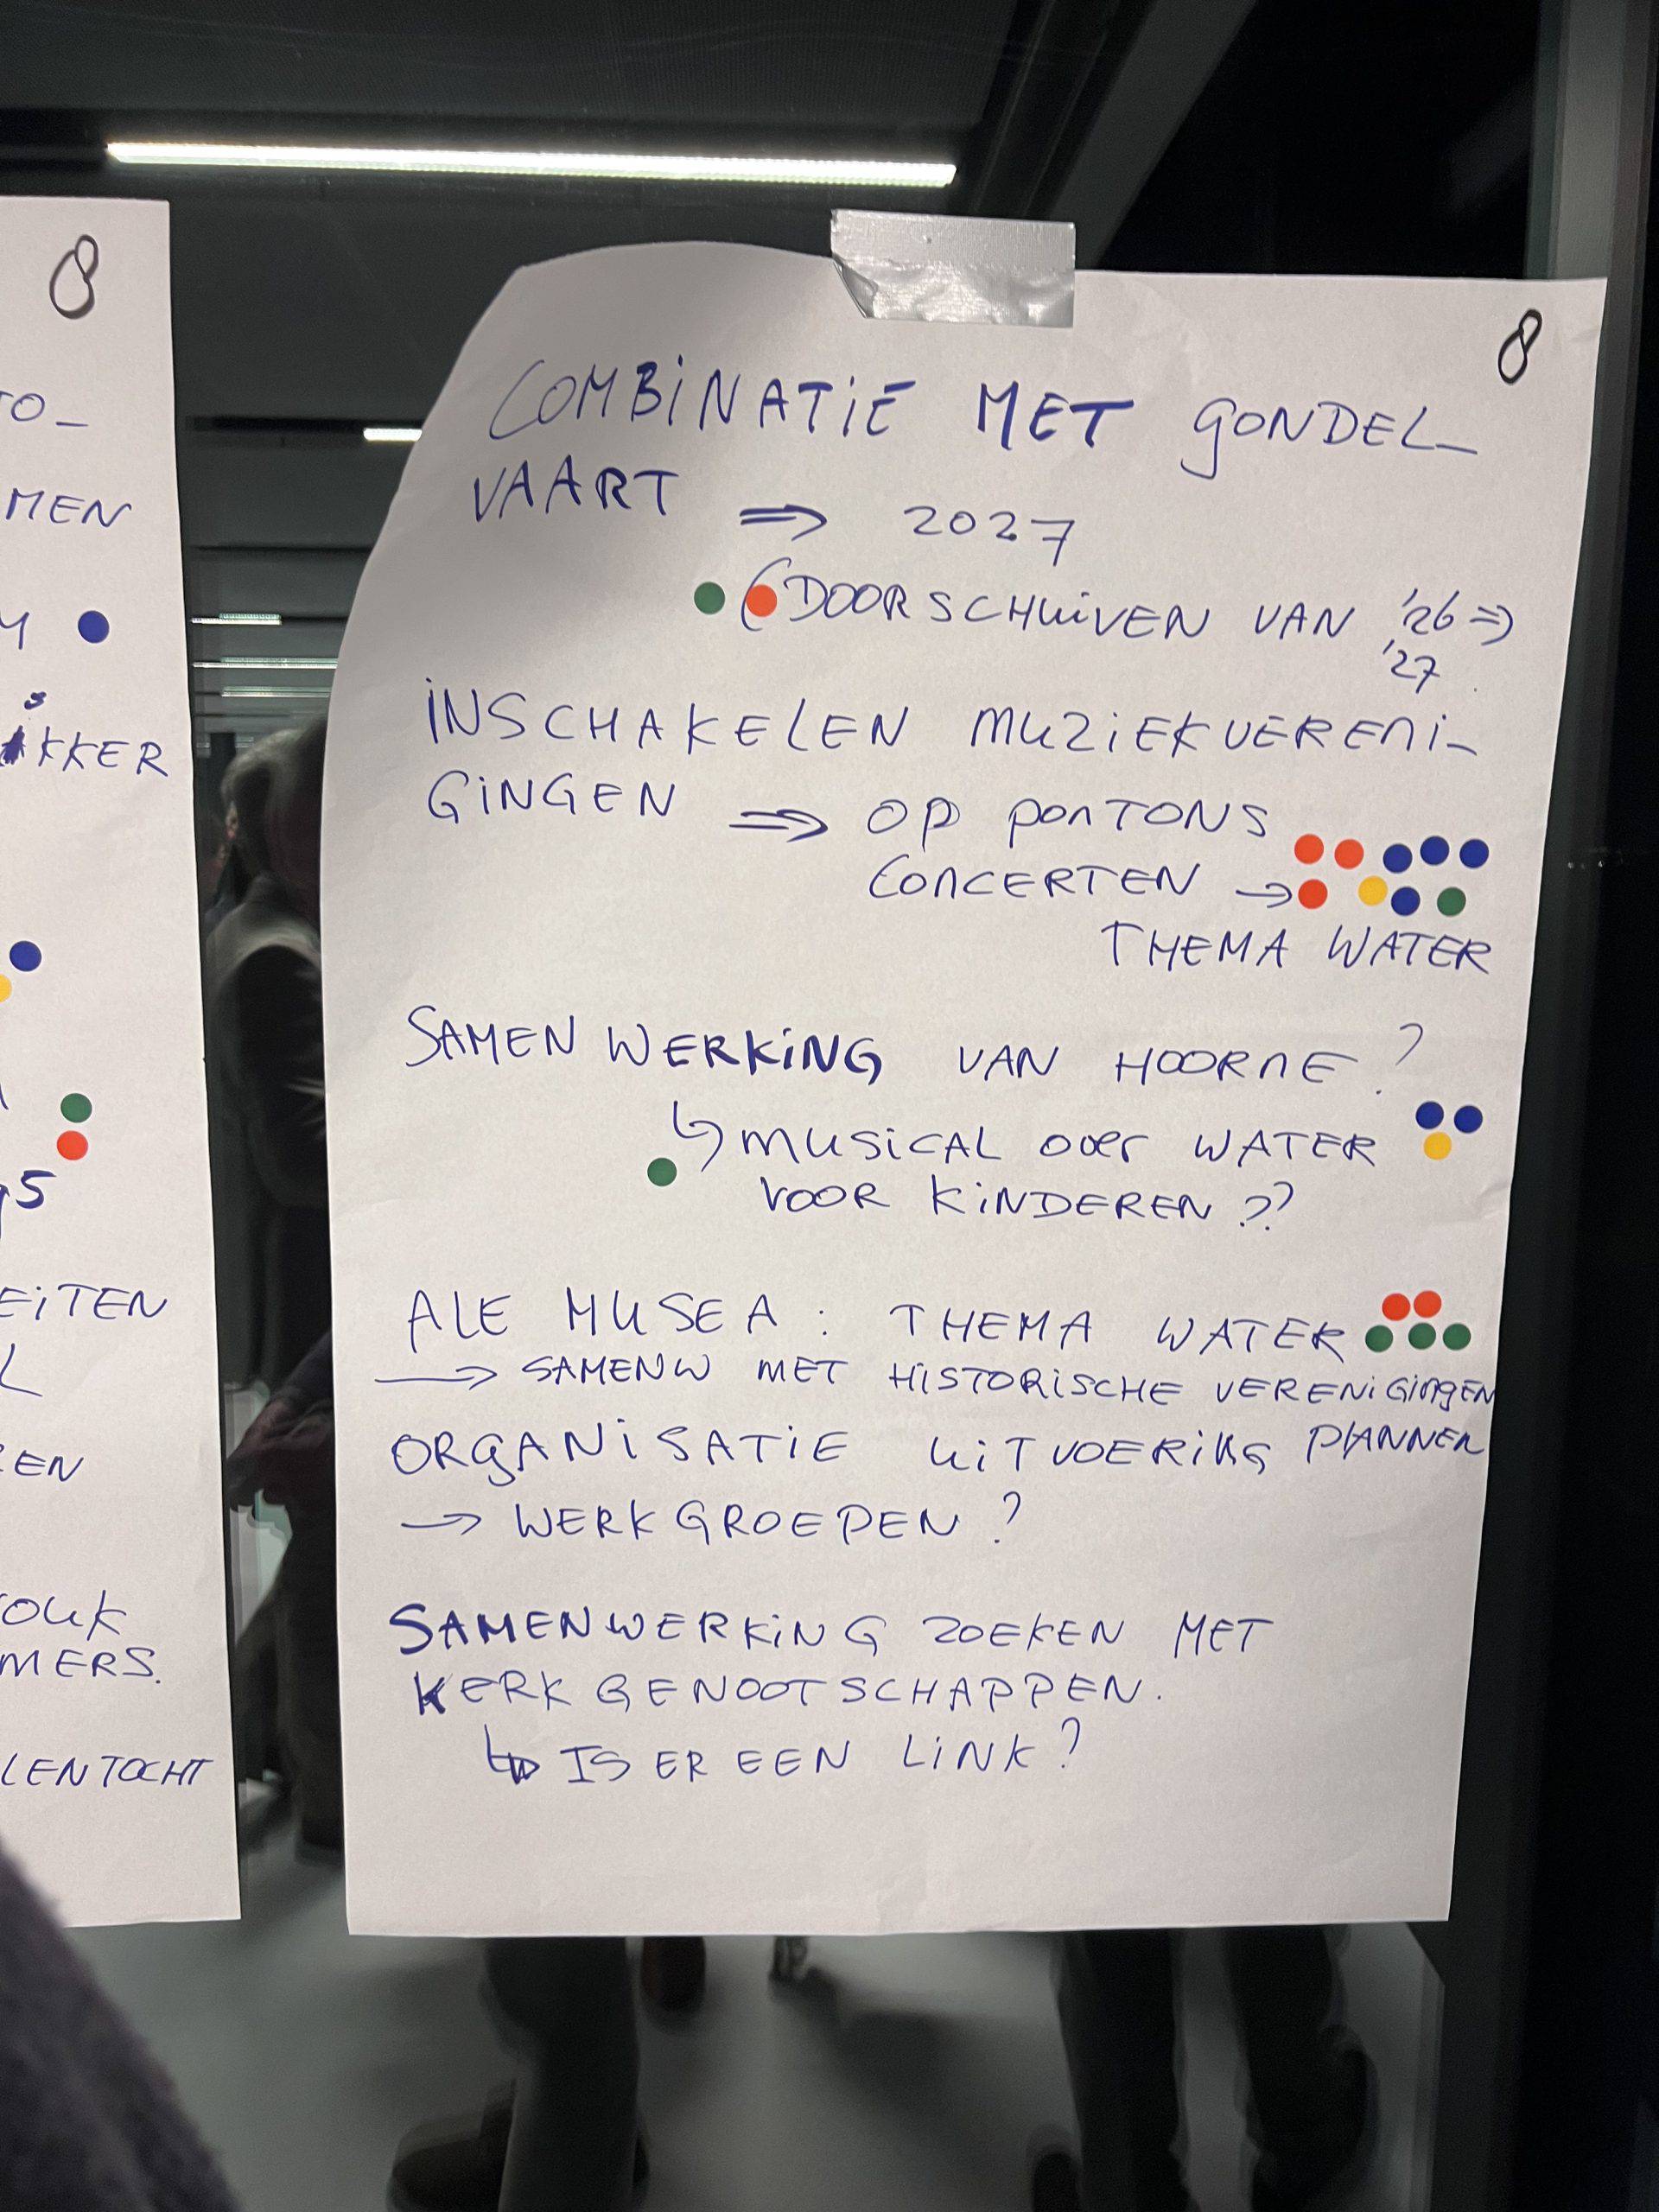 8
TO-
MEN
KKER
5
EITEN
L
EN
OUK
MERS.
LENTOCHT
8
COMBINATIE MET GONDEL-
VAART ⇒ 2027
(DOORSCHUIVEN VAN '26 ⇒
'27
INSCHAKELEN MUZIEKVERENI-
GINGEN ⇒ OP PONTONS
CONCERTEN →
THEMA WATER
SAMENWERKING VAN HOORNE?
↳ MUSICAL OVER WATER
VOOR KINDEREN??
ALE MUSEA: THEMA WATER
→ SAMENW MET HISTORISCHE VERENIGINGEN
ORGANISATIE UITVOERING PLANNEN
→ WERKGROEPEN?
SAMENWERKING ZOEKEN MET
KERKGENOOTSCHAPPEN.
↳ IS ER EEN LINK?